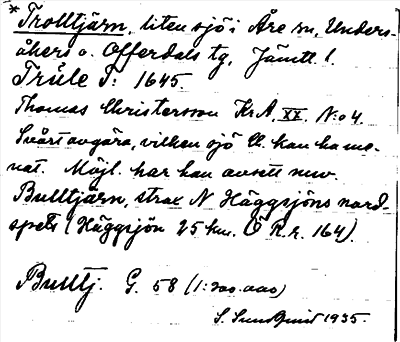 * Trolltjärn, liten sjö i Åre sn, Unders-
åkers o. Offerdals tg, Jämtl. l.
Tråle T: 1645.
Thomas Christersson Kr.A. XX No 4.
Svårt avgöra, vilken sjö C. han ha me-
nat. Möjl. har han avsett nuv.
Bulltjärn, strax N Häggsjöns nord-
spets (Häggsjön 25 km. Ö R.r. 164).
Bulltj. G. 58 (1:200.000)
S. Sundquist 1935.